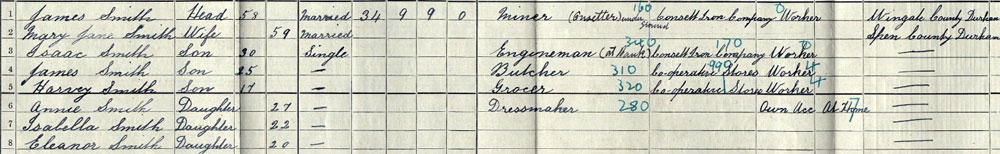 1 James Smith Head 58 Married 34 9 9 0 Miner (Onsetter) under ground 160 Consett Iron Company 0 Worker Wingate County Durham
2 Mary Jane Smith Wife 59 Married Spen County Durham
3 Isaac Smith Son 30 Single Engineman (at Bank) 340 Consett Iron Company 170 Worker 0 —
4 James Smith Son 25 — Butcher 310 Co-operative Stores 990 Worker 4 —
5 Harvey Smith Son 17 — Grocer 320 Co-operative Stores Worker 4 —
6 Annie Smith Daughter 27 — Dressmaker 280 Own Acc At Home 7 —
7 Isabella Smith Daughter 22 — —
8 Eleanor Smith Daughter 20 — —